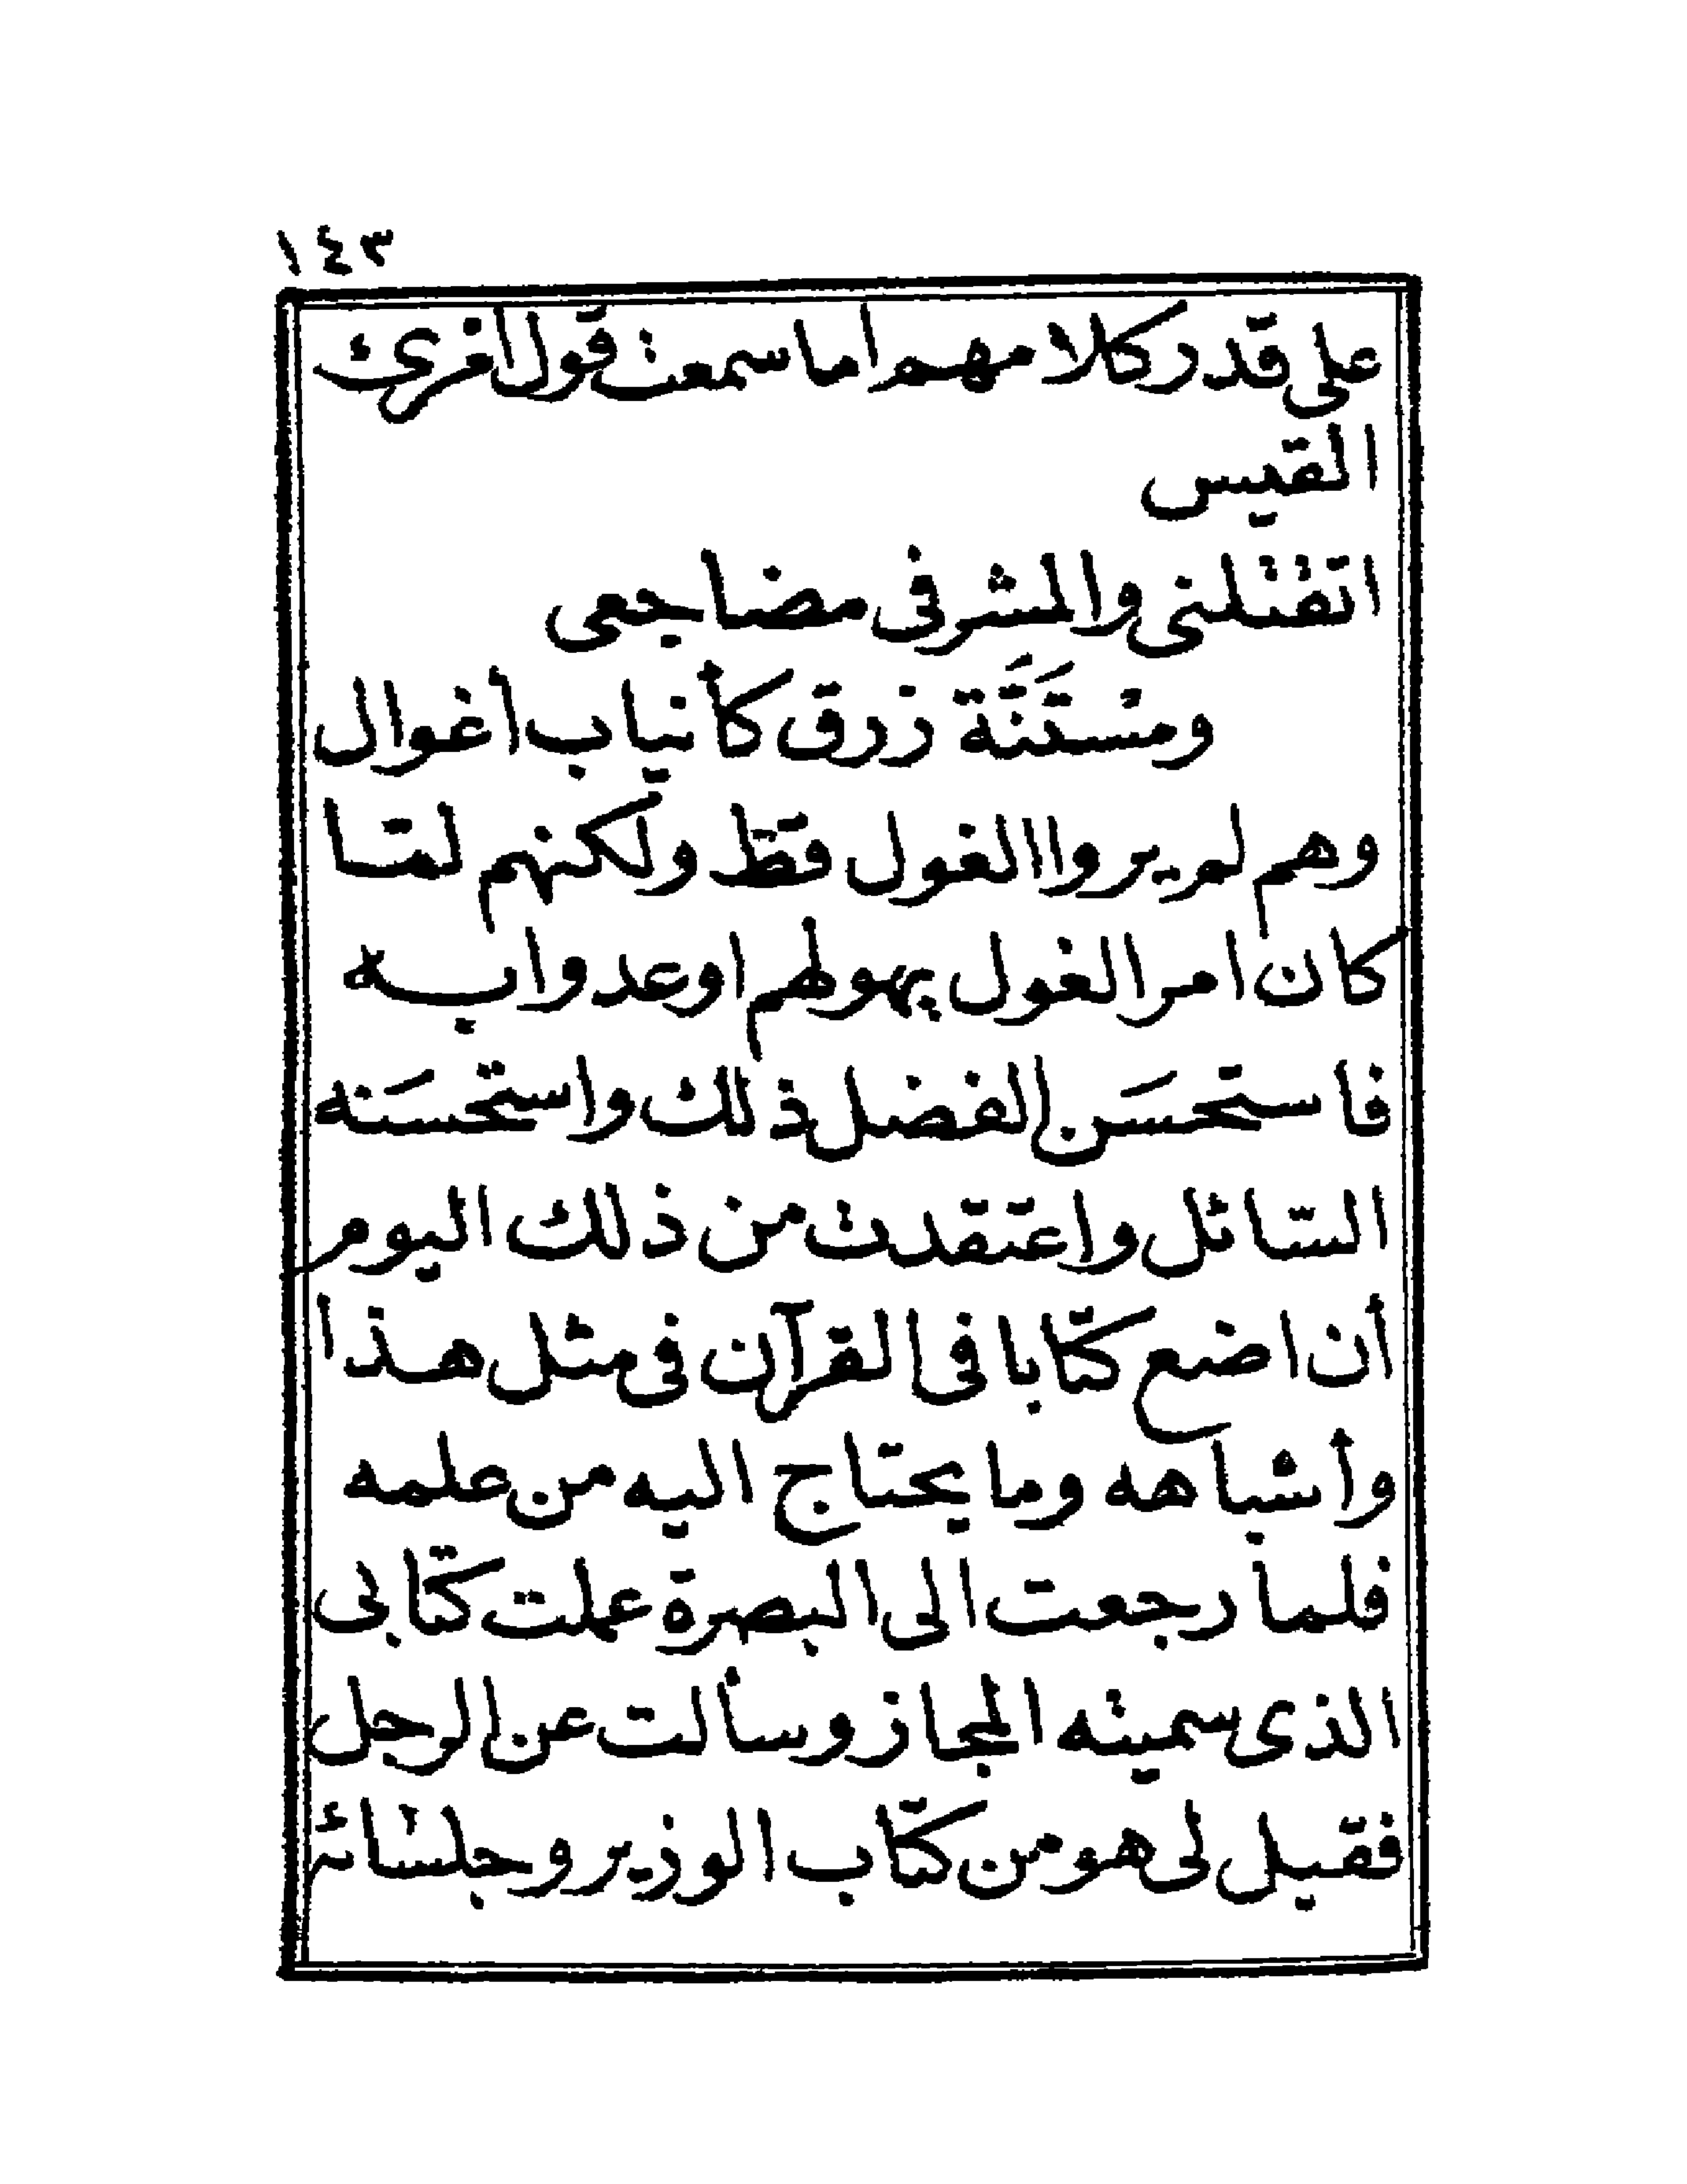 ١٤٣
على قدر كلامهم اما سمعت قول امرئ
القيس
اتقتلنى والمشرفى مضاجعى
ومسَنَّنَة زرق كأنياب أغوال
وهم لم يروا الغول قط ولكنهم لمّا
كان امر الغول يهولهم اوعدوا به
فاستحسَن الفضل ذلك واستحسَنه
السّائل واعتقدت من ذلك اليوم
أن اضع كتابا فى القرآن فى مثل هذا
وأشباهه وما يحتاج اليه من علمه
فلما رجعت الى البصرة عملت كتابى
الذى سميته المجاز وسألت عن الرجل
فقيل لى هو من كتّاب الوزير وجلسائه